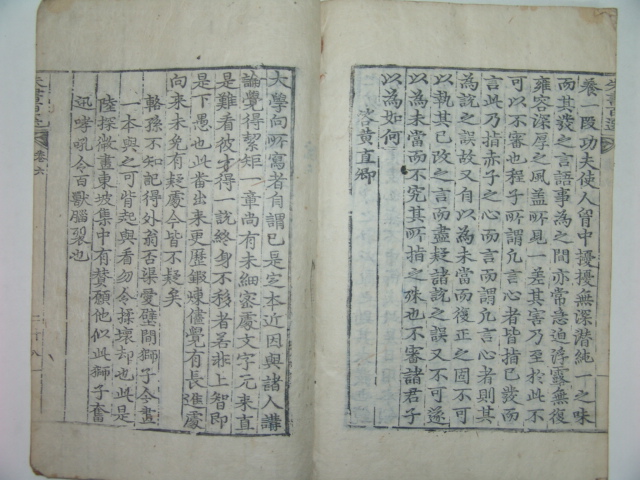 養一段功夫使人胷中擾擾無深潜純一之味
而其發之言語事為之間亦常急迫浮露無復
雍容深厚之風盖所見一差其害乃至於此不
可以不審也程子所謂凡言心者皆指已發而
言此乃指赤子之心而言而謂凡言心者則其
為說之誤故又自以為未當而復正之固不可
以執其已改之言而盡疑諸說之誤又不可遂
以為未當而不究其所指之殊也不審諸君子
以為如何
答黃直卿
大學向所寫者自謂已是定本近因與諸人講
論覺得絜矩一章尚有未細密處文字元來直
是難看彼才得一說終身不移者若非上智即
是下愚也此畨出來更歷鍜煉儘覺有長進處
向來未免有疑處今皆不疑矣
輅孫不知記得外翁否渠愛壁間獅子今畫
一本與之可背起與看勿令揉壞却也此是
陸探微畫東坡集中有賛願他似此獅子奮
迅哮吼令百獸腦裂也
卷六
二百八